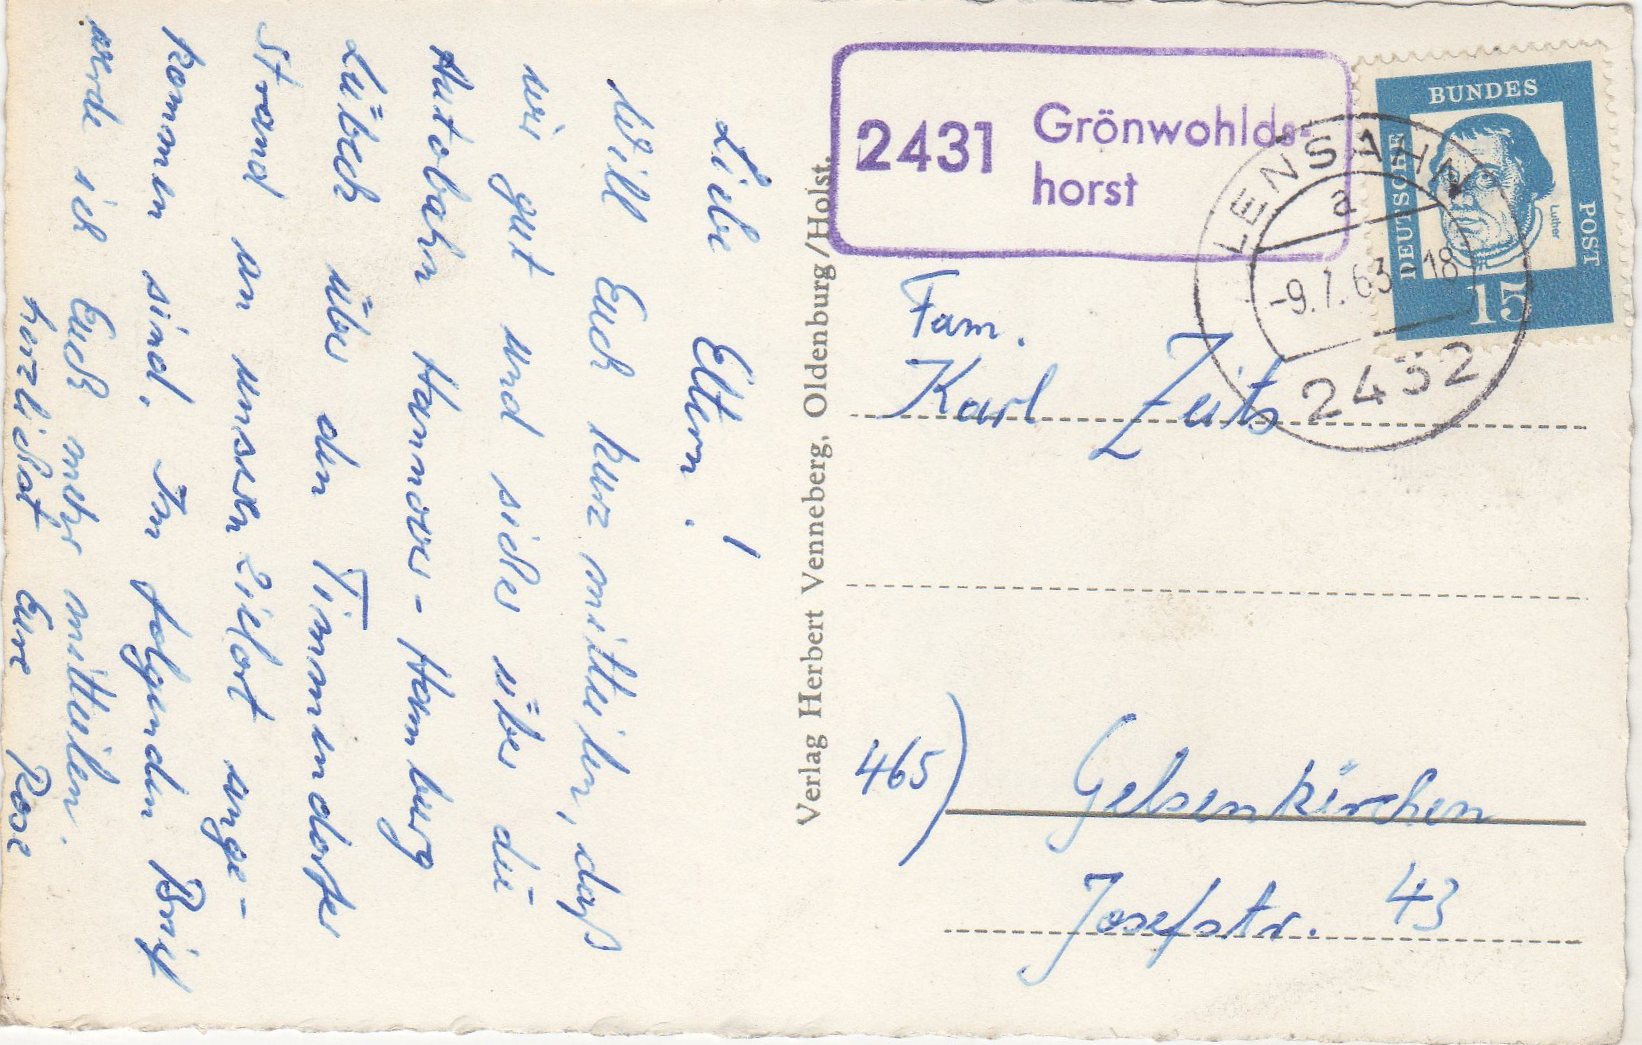 Liebe Eltern. !
Will Euch kurz mitteilen, daß
wir gut und sicher über die
Autobahn Hannover-Hamburg
Lübeck über den Timmendorfer
Strand an unseren Zielort ange-
kommen sind. Im folgenden Brief
werde ich Euch mehr mitteilen.
herzlichst Eure Rosi
Verlag Herbert Venneberg, Oldenburg/Holst.
2431 Grönwohlds-
horst
BUNDES
DEUTSCHE
POST
Luther
15
LENSAHN
a
-9.7.63-18
2432
Fam.
Karl Zeits
465) Gelsenkirchen
Josefstr. 43